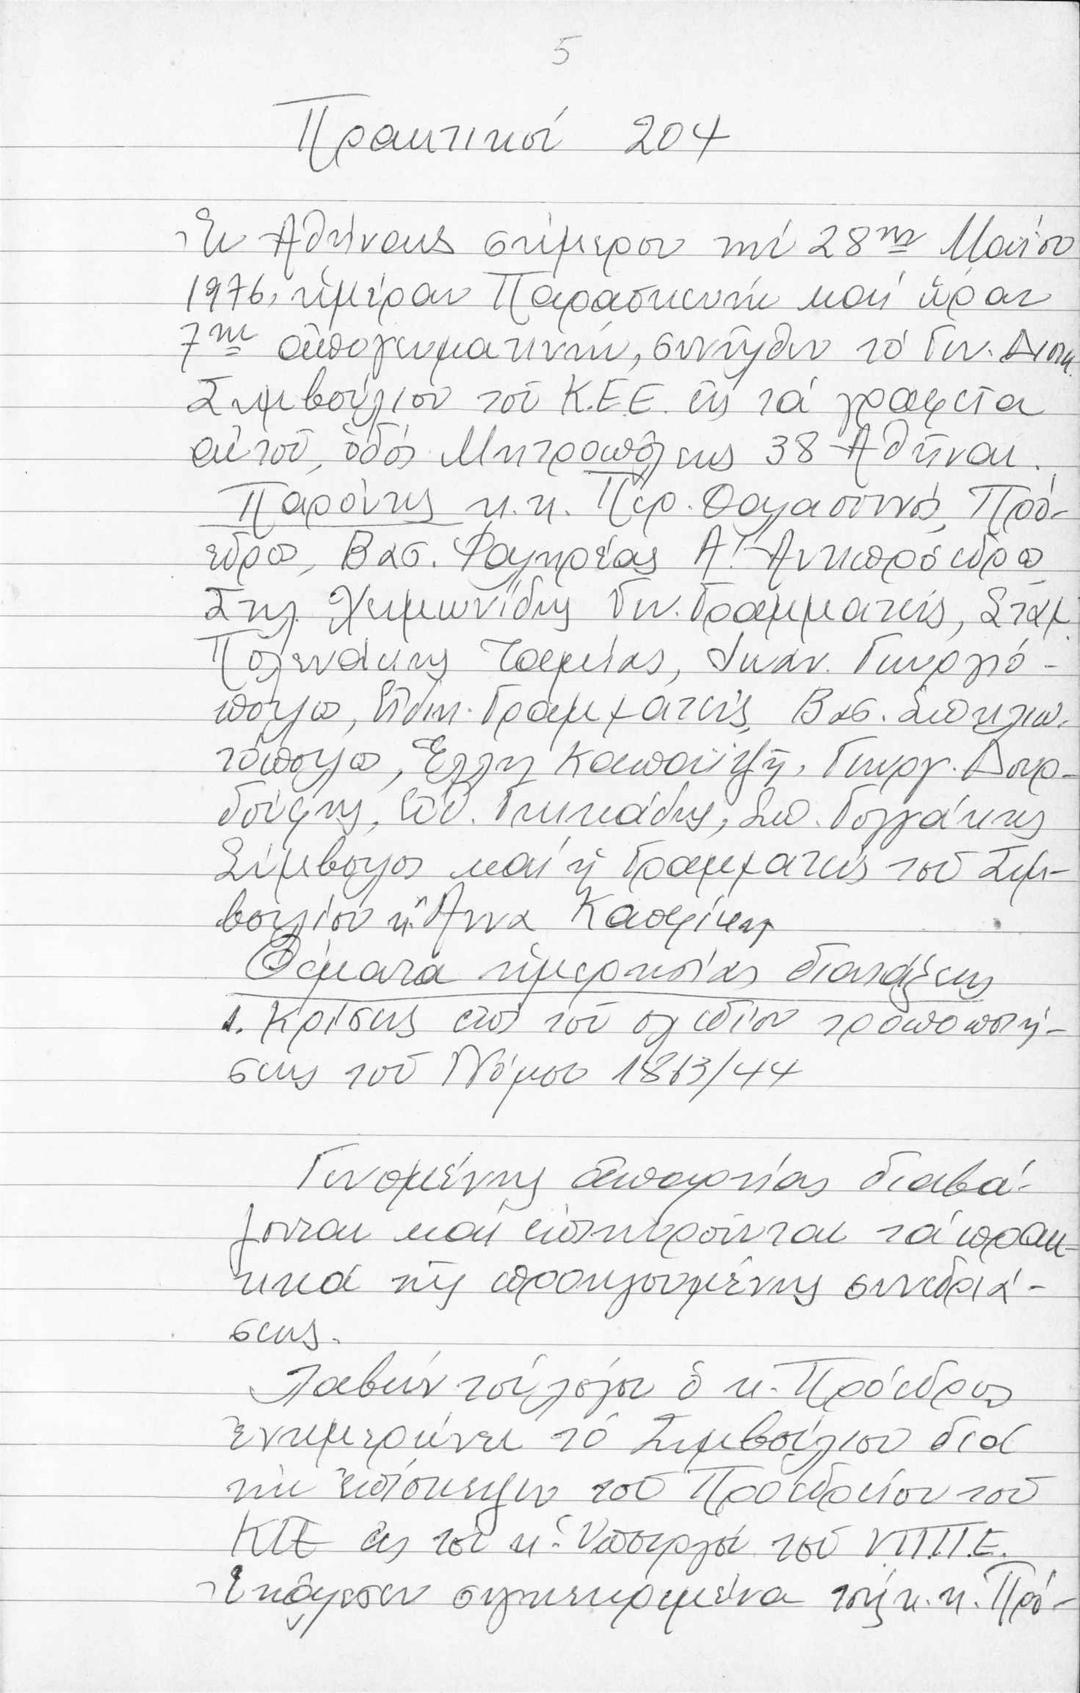 5
Πρακτικόν 204
Ἐν Ἀθήναις σήμερον τήν 28ην Μαΐου
1976, ἡμέραν Παρασκευήν καί ὥραν
7ην ἀπογευματινήν, συνῆλθεν τό Γεν. Διοικ.
Συμβούλιον τοῦ Κ.Ε.Ε. εἰς τά γραφεῖα
αὐτοῦ, ὁδός Μητροπόλεως 38 Ἀθῆναι.
Παρόντες κ.κ. Περ. Θαλασσινός, Πρό-
εδρος, Βασ. Φαληρέας Α! Ἀντιπρόεδρος
Στυλ. Χειμωνίδης Γεν. Γραμματεύς, Σταμ.
Πολενάκης Ταμίας, Ἰωάν. Γεωργιό-
πουλος, Εἰδικ. Γραμματεύς, Βασ. Σπηλιω-
τόπουλος, Ἕλλη Γεωργ. Δαρ-
δούφης, Γκικάδης, Σπ. Γογγάκης
Σύμβουλοι καί ἡ Γραμματεύς τοῦ Συμ-
βουλίου κ. Ἄννα
Θέματα ἡμερησίας διατάξεως
1. Κρίσεις ἐπί τοῦ σχεδίου τροποποιή-
σεως τοῦ Νόμου 1863/44
Γενομένης ἀπαρτίας διαβά-
ζονται καί ἐπικυροῦνται τά πρακ-
τικά τῆς προηγουμένης συνεδριά-
σεως.
Λαβών τόν λόγον ὁ κ. Πρόεδρος
ἐνημερώνει τό Συμβούλιον διά
τήν ἐπίσκεψιν τοῦ Προεδρείου τοῦ
ΚΕΕ εἰς τόν κ. Ὑπουργόν τοῦ ΥΠ.Π.Ε.
Ἐκάλεσεν συγκεκριμένα τούς κ.κ. Πρό-